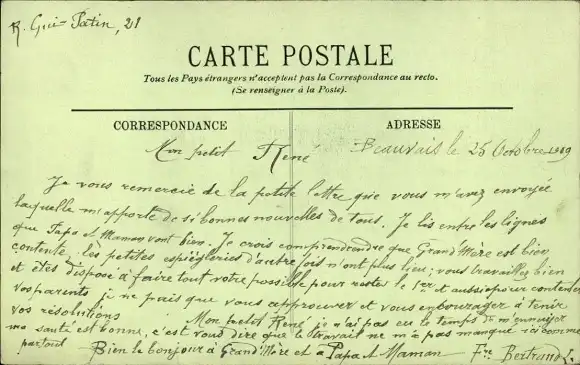 R. Gui-Patin, 21
CARTE POSTALE
Tous les Pays étrangers n'acceptent pas la Correspondance au recto.
(Se renseigner à la Poste).
CORRESPONDANCE
ADRESSE
Mon petit René
Beauvais le 25 Octobre 1909
Je vous remercie de la petite lettre que vous m'avez envoyée
laquelle m'apporte de si bonnes nouvelles de tous. Je lis entre les lignes
que Papa et Maman vont bien. Je crois comprendre que Grand'Mère est bien
contente, les petites espiègleries d'autre fois n'ont plus lieu; vous travaillez bien
et êtes disposé à faire tout votre possible pour rester le 1er et aussi pour contenter
vos parents, je ne puis que vous approuver et vous encourager à tenir
vos résolutions
Mon petit René je n'ai pas eu le temps de m'ennuyer
ma santé est bonne, c'est vous dire que le travail ne m'a pas manqué ici comme
partout
Bien le bonjour à Grand'Mère et à Papa et Maman
Fre Bertrand L.